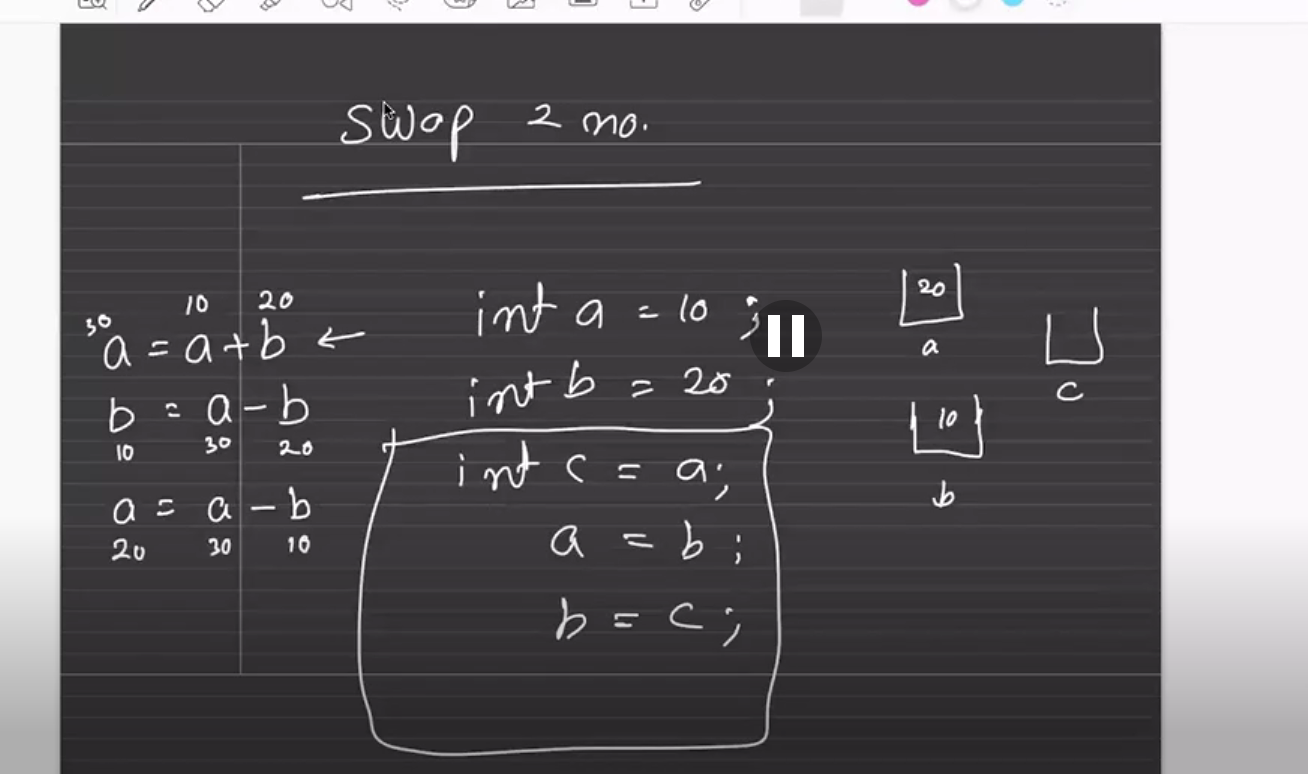 swap 2 no.
10 20
30
a = a + b ←
b = a - b
10 30 20
a = a - b
20 30 10
int a = 10 ;
int b = 20 ;
int c = a;
a = b ;
b = c ;
20
a
c
10
b